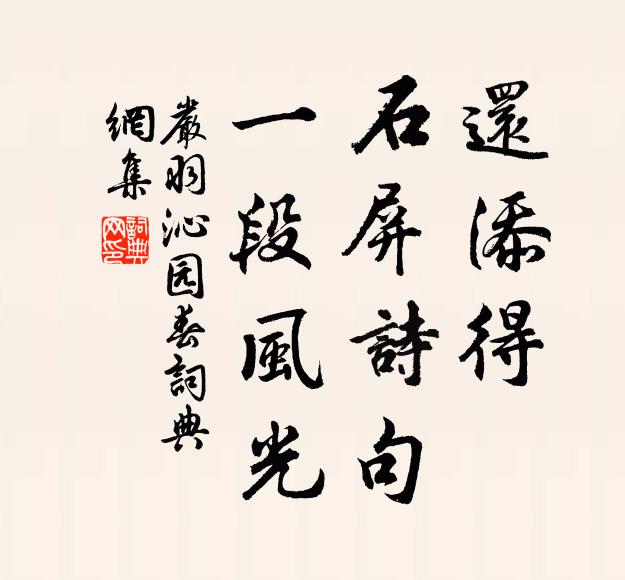 還添得
石屏詩句
一段風光
嚴羽沁园春詞典
網集
詞典
网印